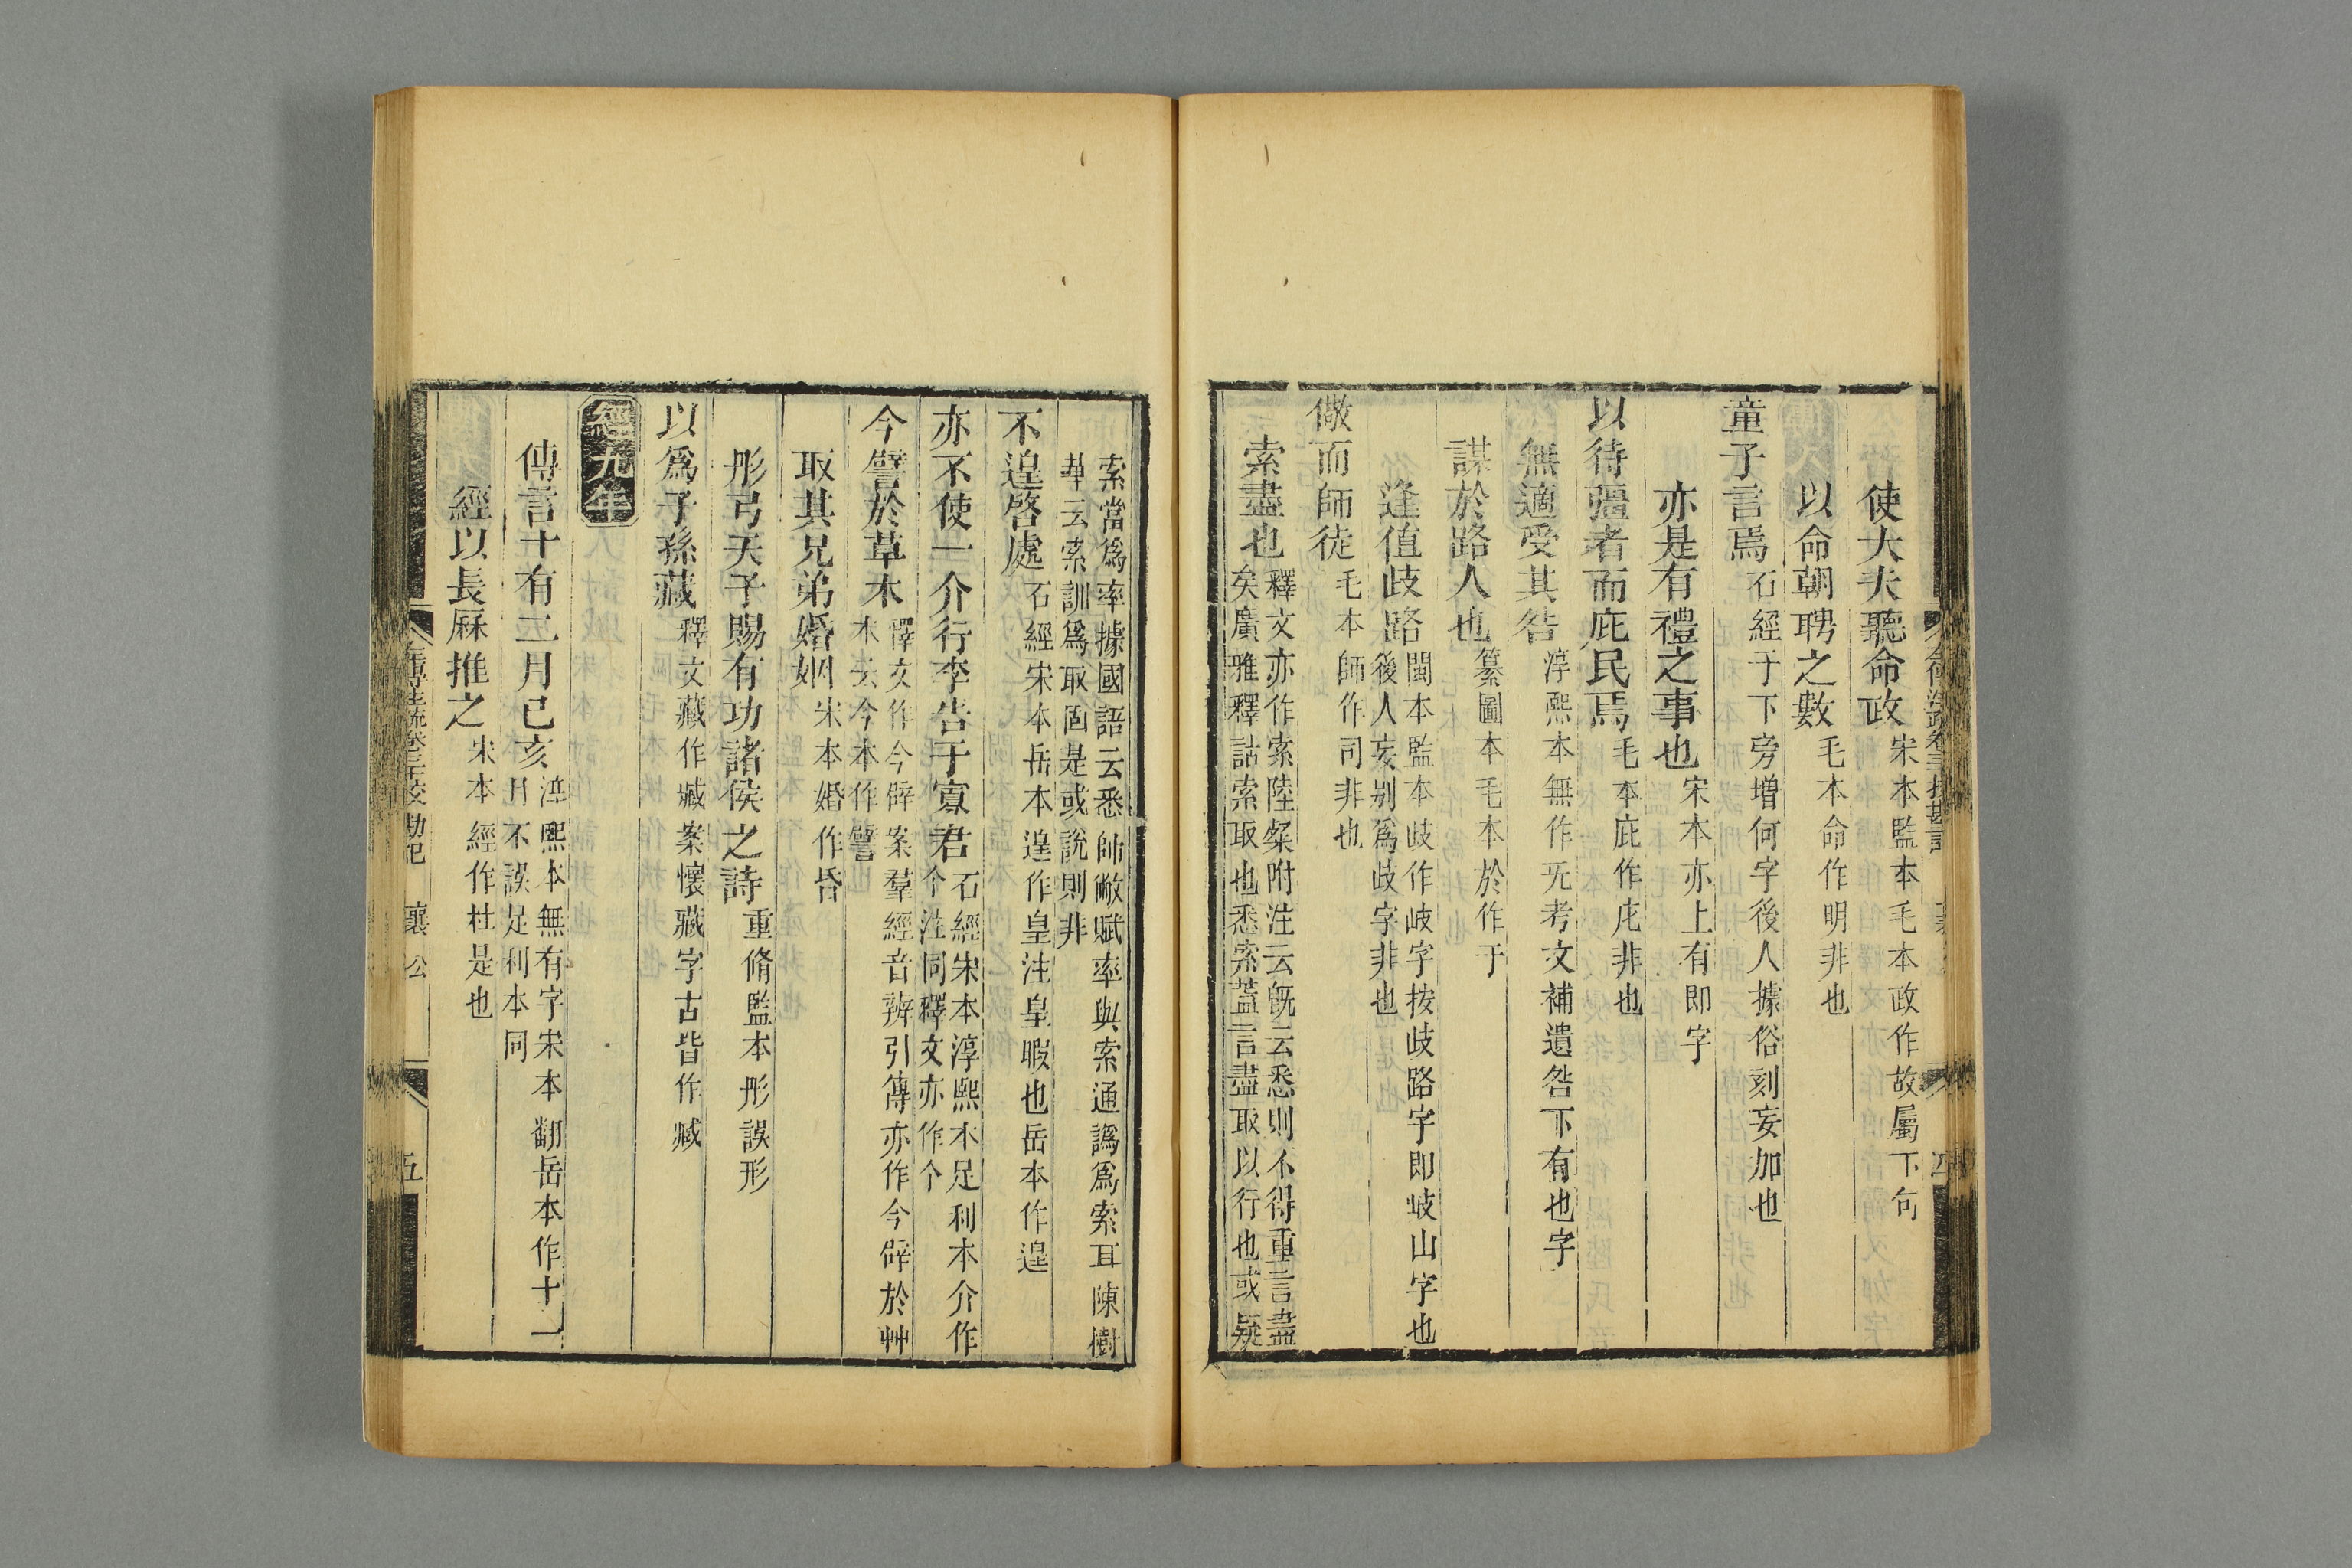 使大夫聽命政宋本監本毛本政作故屬下句
以命朝聘之數毛本命作明非也
童子言焉石經于下旁增何字後人據俗刻妄加也
亦是有禮之事也宋本亦上有即字
以待彊者而庇民焉毛本庇作庀非也
無適受其咎淳熙本無作旡考文補遺咎下有也字
謀於路人也纂圖本毛本於作于
逢值歧路閩本監本歧作岐字按歧路字即岐山字也
後人妄别爲歧字非也
儆而師徒毛本師作司非也
索盡也釋文亦作索陸粲附注云旣云悉則不得重言盡
矣廣雅釋詁索取也悉索葢言盡取以行也或疑
索當爲率據國語云悉帥敝賦率與索通譌爲索耳陳樹
華云索訓爲取固是或說則非
不遑啓處石經宋本岳本遑作皇注皇暇也岳本作遑
亦不使一介行李告于寡君石經宋本淳熙本足利本介作
个注同釋文亦作个
今譬於草木釋文作今辟案羣經音辨引傳亦作今辟於艸
木云今本作譬
取其兄弟婚姻宋本婚作昏
彤弓天子賜有功諸侯之詩重脩監本彤誤形
以爲子孫藏釋文藏作臧案懷藏字古皆作臧
經九年
傳言十有二月己亥淳熙本無有字宋本翻岳本作十一
月不誤足利本同
經以長厤推之宋本經作杜是也
襄公
五